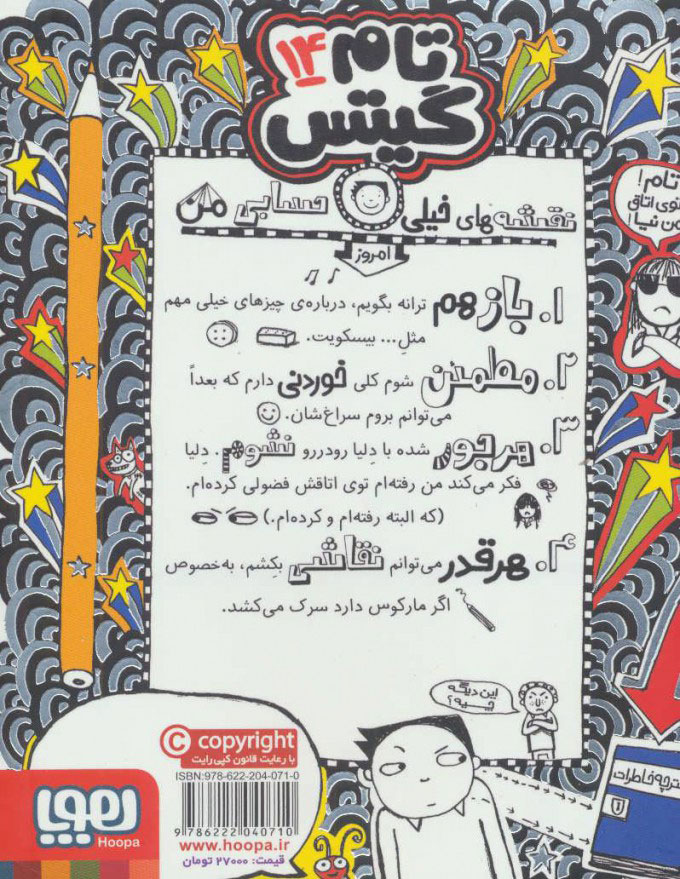 تام ۱۴
گیتس
نقشه‌های خیلی حسابی من
امروز
۱. بازهم ترانه بگویم، درباره‌ی چیزهای خیلی مهم
مثلِ... بیسکویت.
۲. مطمئن شوم کلی خوردنی دارم که بعداً
می‌توانم بروم سراغ‌شان.
۳. هرجور شده با دِلیا رودررو نشوم. دِلیا
فکر می‌کند من رفته‌ام توی اتاقش فضولی کرده‌ام.
(که البته رفته‌ام و کرده‌ام.)
۴. هرقدر می‌توانم نقاشی بکِشم، به‌خصوص
اگر مارکوس دارد سرک می‌کشد.
تام!
توی اتاق
من نیا!
این دیگه
چیه؟
خاطرات
© copyright
با رعایت قانون کپی‌رایت
ISBN:978-622-204-071-0
9 786222 040710
www.hoopa.ir
قیمت: ۲۷۰۰۰ تومان
هوپا
Hoopa